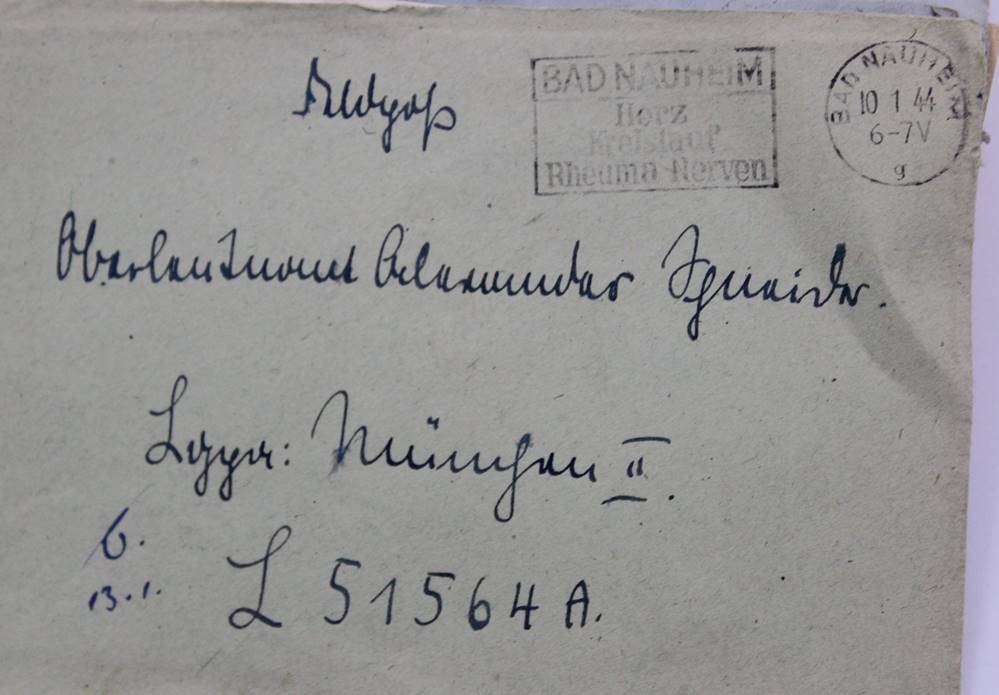 Feldpost
BAD NAUHEIM
Herz
Kreislauf
Rheuma Nerven
BAD NAUHEIM
10 1 44
6-7V
g
Oberleutnant Alexander Schneider.
Lgpa: München II.
6.
13.1.
L 51564 A.